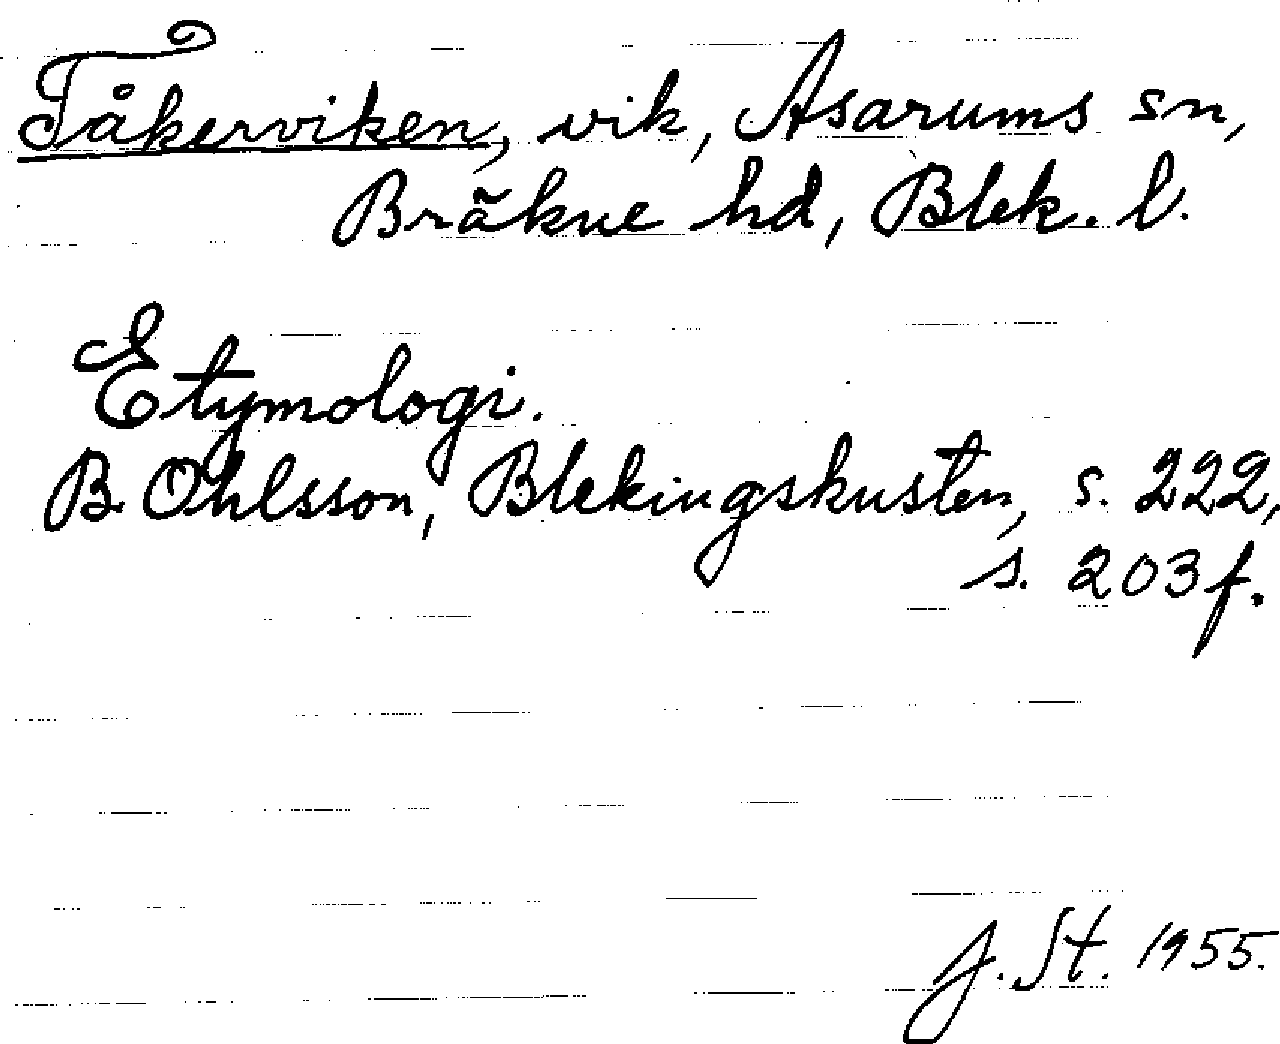 Tåkerviken, vik, Asarums sn,
Bräkne hd, Blek. l.
Etymologi.
B. Ohlsson, Blekingskusten, s. 222,
s. 203 f.
J. St. 1955.